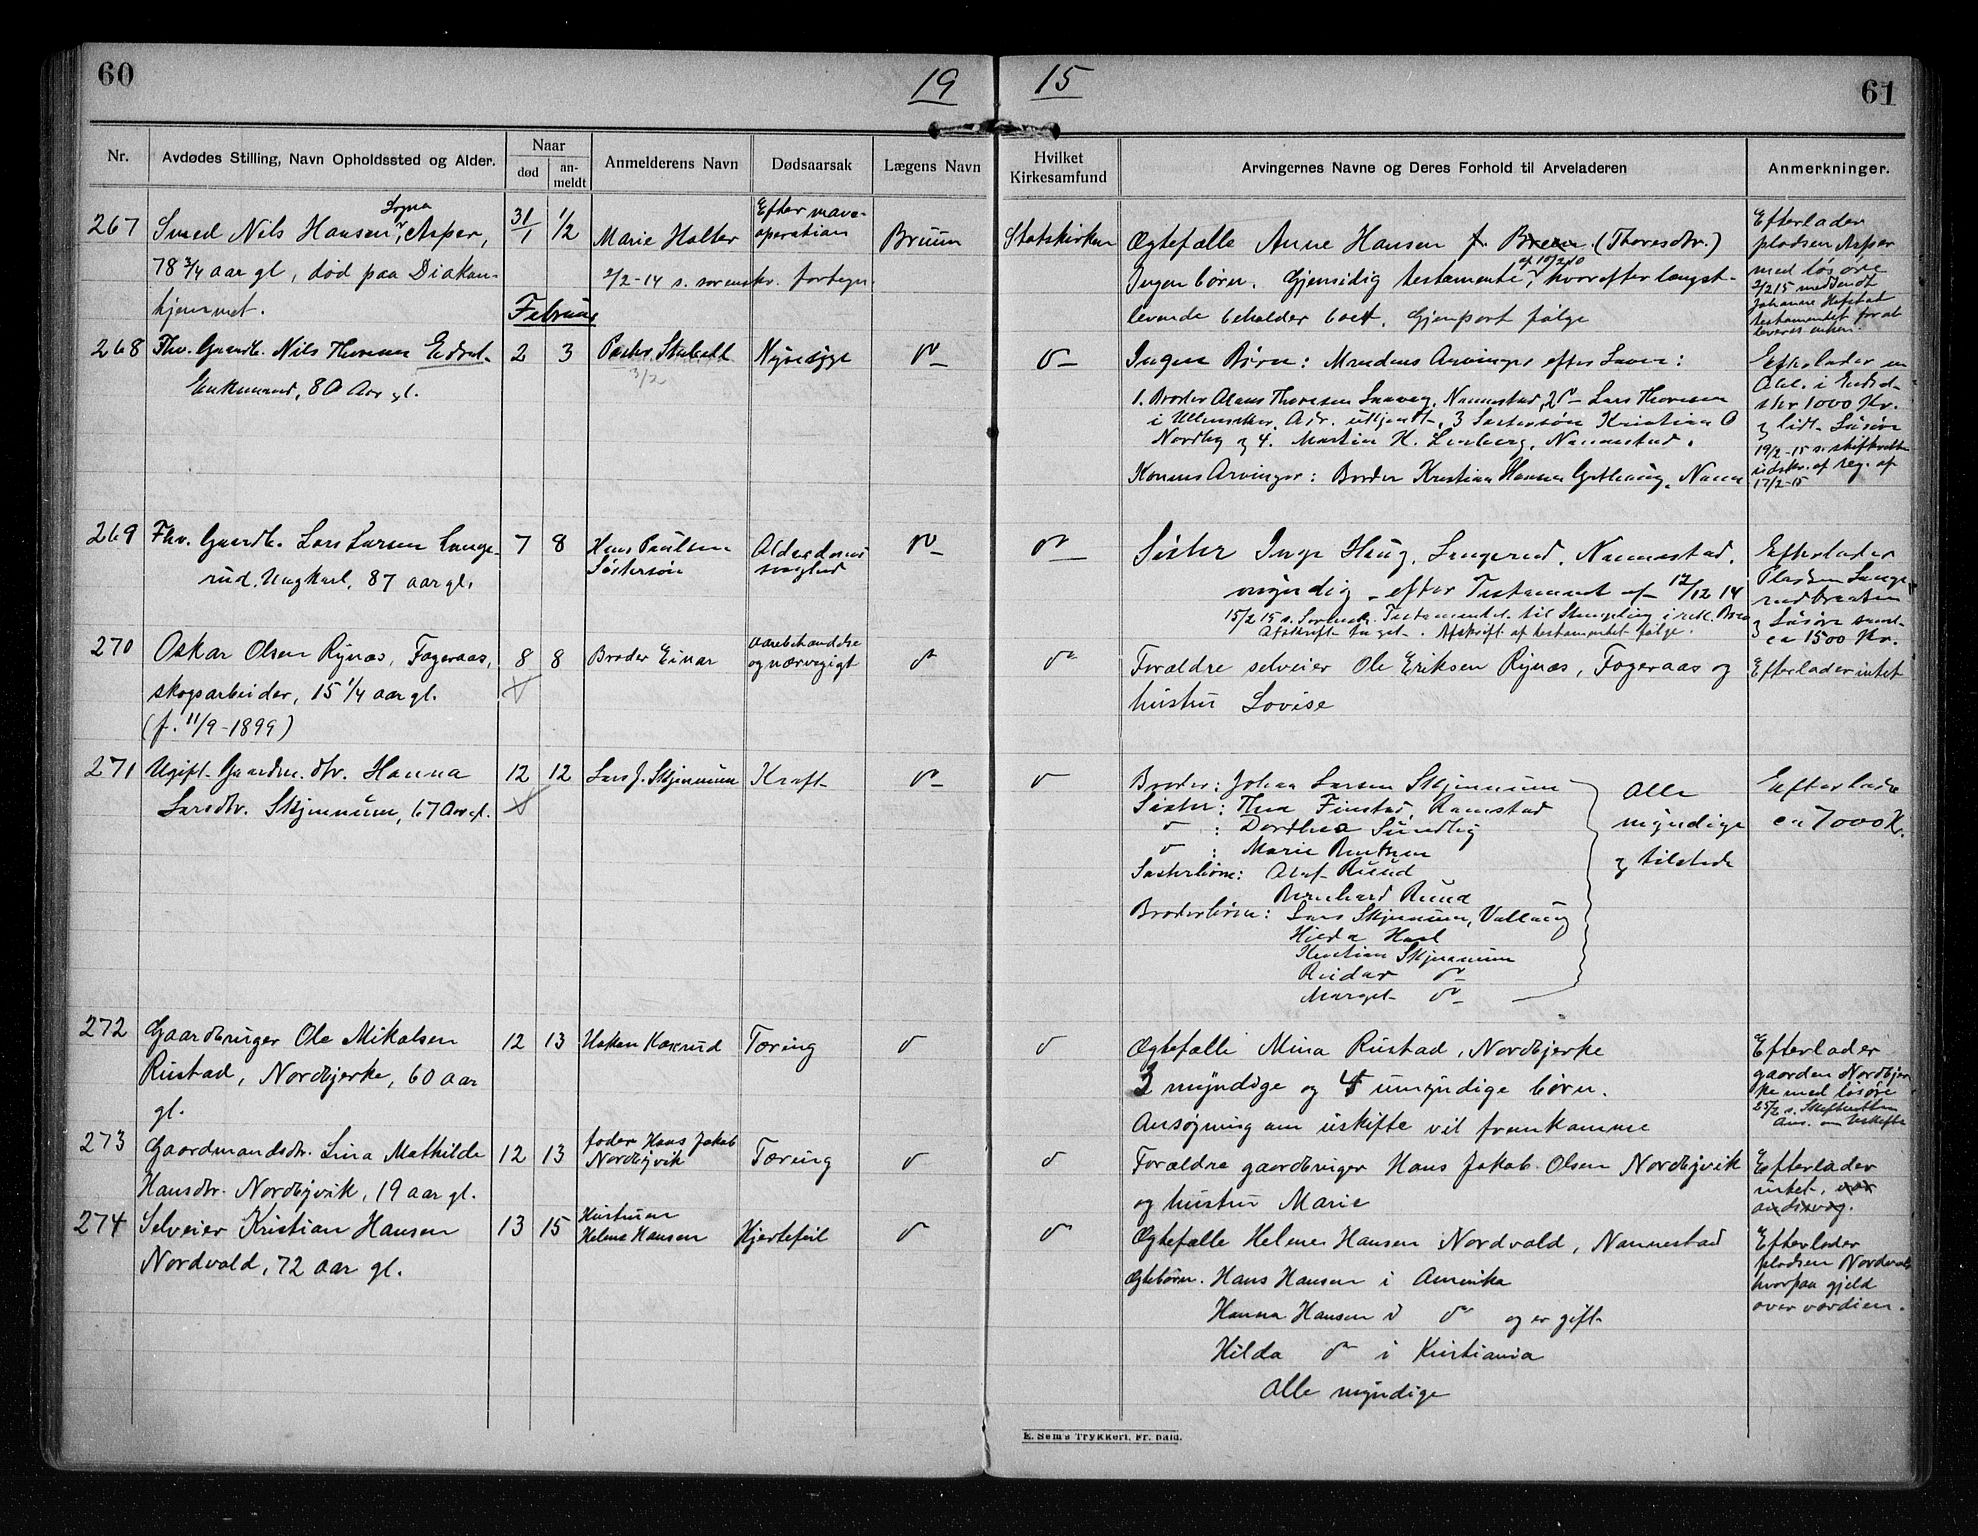 60
19
15
61
Nr.
Avdødes Stilling, Navn Opholdssted og Alder.
Naar
død
an-
meldt
Anmelderens Navn
Dødsaarsak
Lægens Navn
Hvilket
Kirkesamfund
Arvingernes Navne og Deres Forhold til Arveladeren
Anmerkninger.
267
Smed Nils Hansen Asper,
78 3/4 aar gl, død paa Diakon-
hjemmet.
31/1
1/2
Marie Holter
2/2-14 s. sorenskr. fortegn.
Efter mave-
operation
Bruun
Statskirken
Ægtefælle Anne Hansen f. (Thoresdtr.)
Ingen børn. Gjensidig testamente af 10/2 10, hvorefter længst-
levende beholder boet. Gjenpart følge
Efterlader
pladsen Asper
med løsøre
2/2 15 medsendt
testamentet for at
leveres enken.
Februar
268
Fhv. Gaardb. Nils Thoresen
Enkemand, 80 Aar gl.
2
3
3/2
Nyresyge
do
do
Ingen Børn: Mandens Arvinger efter Loven:
1. Broder Thoresen Nannestad, 2 do Lars Thoresen
i Ullensaker, Adr. ubkjendt, 3 Søstersøn Kristian O
Nordby og 4. Martin H. Nannestad.
Konens Arvinger: Broder Kristian Hansen
Efterlader en
i
skr 1000 Kr.
og lidt Løsøre
19/2-15 s. skifteretten
udskr. af reg. af
17/2-15
269
Fhv. Gaardb. Lars Larsen Lange-
rud. Ungkarl, 87 aar gl.
7
8
Hans Paulsen
Søstersøn
Alderdoms
svaghed
do
do
Søster Inge Haug, Langerud, Nannestad,
myndig - efter Testament af 12/12 14
15/2 15 s. Sorensk. Testamentet til
Afskrift taget. Afskrift af testamentet følge.
Efterlader
Pladsen Lange-
rudbraaten
og Løsøre samt
ca 1500 Kr.
270
Oskar Olsen Rynæs, Fageraas,
skogsarbeider, 15 1/4 aar gl.
(f. 11/9-1899)
8
8
Broder Einar
aarebetændelse
og nærvegigt
do
do
Forældre selveier Ole Eriksen Rynæs, Fageraas og
hustru Lovise
Efterlader intet
271
Ugift Gaardm. dtr. Hanna
Larsdtr. Skjennum, 67 Aar gl.
12
12
Lars J. Skjennum
Kræft
do
do
Broder: Johan Larsen Skjennum
Søster: Thea Finstad, Ramstad
do : Dorthea Sundby
do : Marie Bentsen
Søsterbørn: Olaf Ruud
Bernhard Ruud
Broderbørn: Lars Skjennum,
Hilda
Kristian Skjennum
Reidar do
Margit do
Alle
myndige
og tilstede
Efterlader
ca 7000 Kr.
272
Gaardbruger Ole Mikalsen
Rustad, Nordbjerke, 60 aar
gl.
12
13
Hakon Kaxrud
Tæring
do
do
Ægtefælle Mina Rustad, Nordbjerke
3 myndige og 4 umyndige børn.
Ansøgning om uskifte vil fremkomme
Efterlader
gaarden Nordbjer-
ke med løsøre
25/2 s. Skifteretten
Ans. om Uskifte
273
Gaardmandsdtr. Lina Mathilde
Hansdtr. Nordbyvik, 19 aar gl.
12
13
fader Hans Jakob
Nordbyvik
Tæring
do
do
Forældre gaardbruger Hans Jakob Olsen Nordbyvik
og hustru Marie
Efterlader
intet,
274
Selveier Kristian Hansen
Nordvold, 72 aar gl.
13
15
Hustruen
Helene Hansen
Hjertefeil
do
do
Ægtefælle Helene Hansen Nordvold, Nannestad
Ægtebørn. Hans Hansen i Amerika
Hanna Hansen i do og er gift
Hilda do i Kristiania
Alle myndige
Efterlader
pladsen Nordvold
hvorpaa gjeld
over værdien.
E. Sem's Trykkeri, Fr. hald.